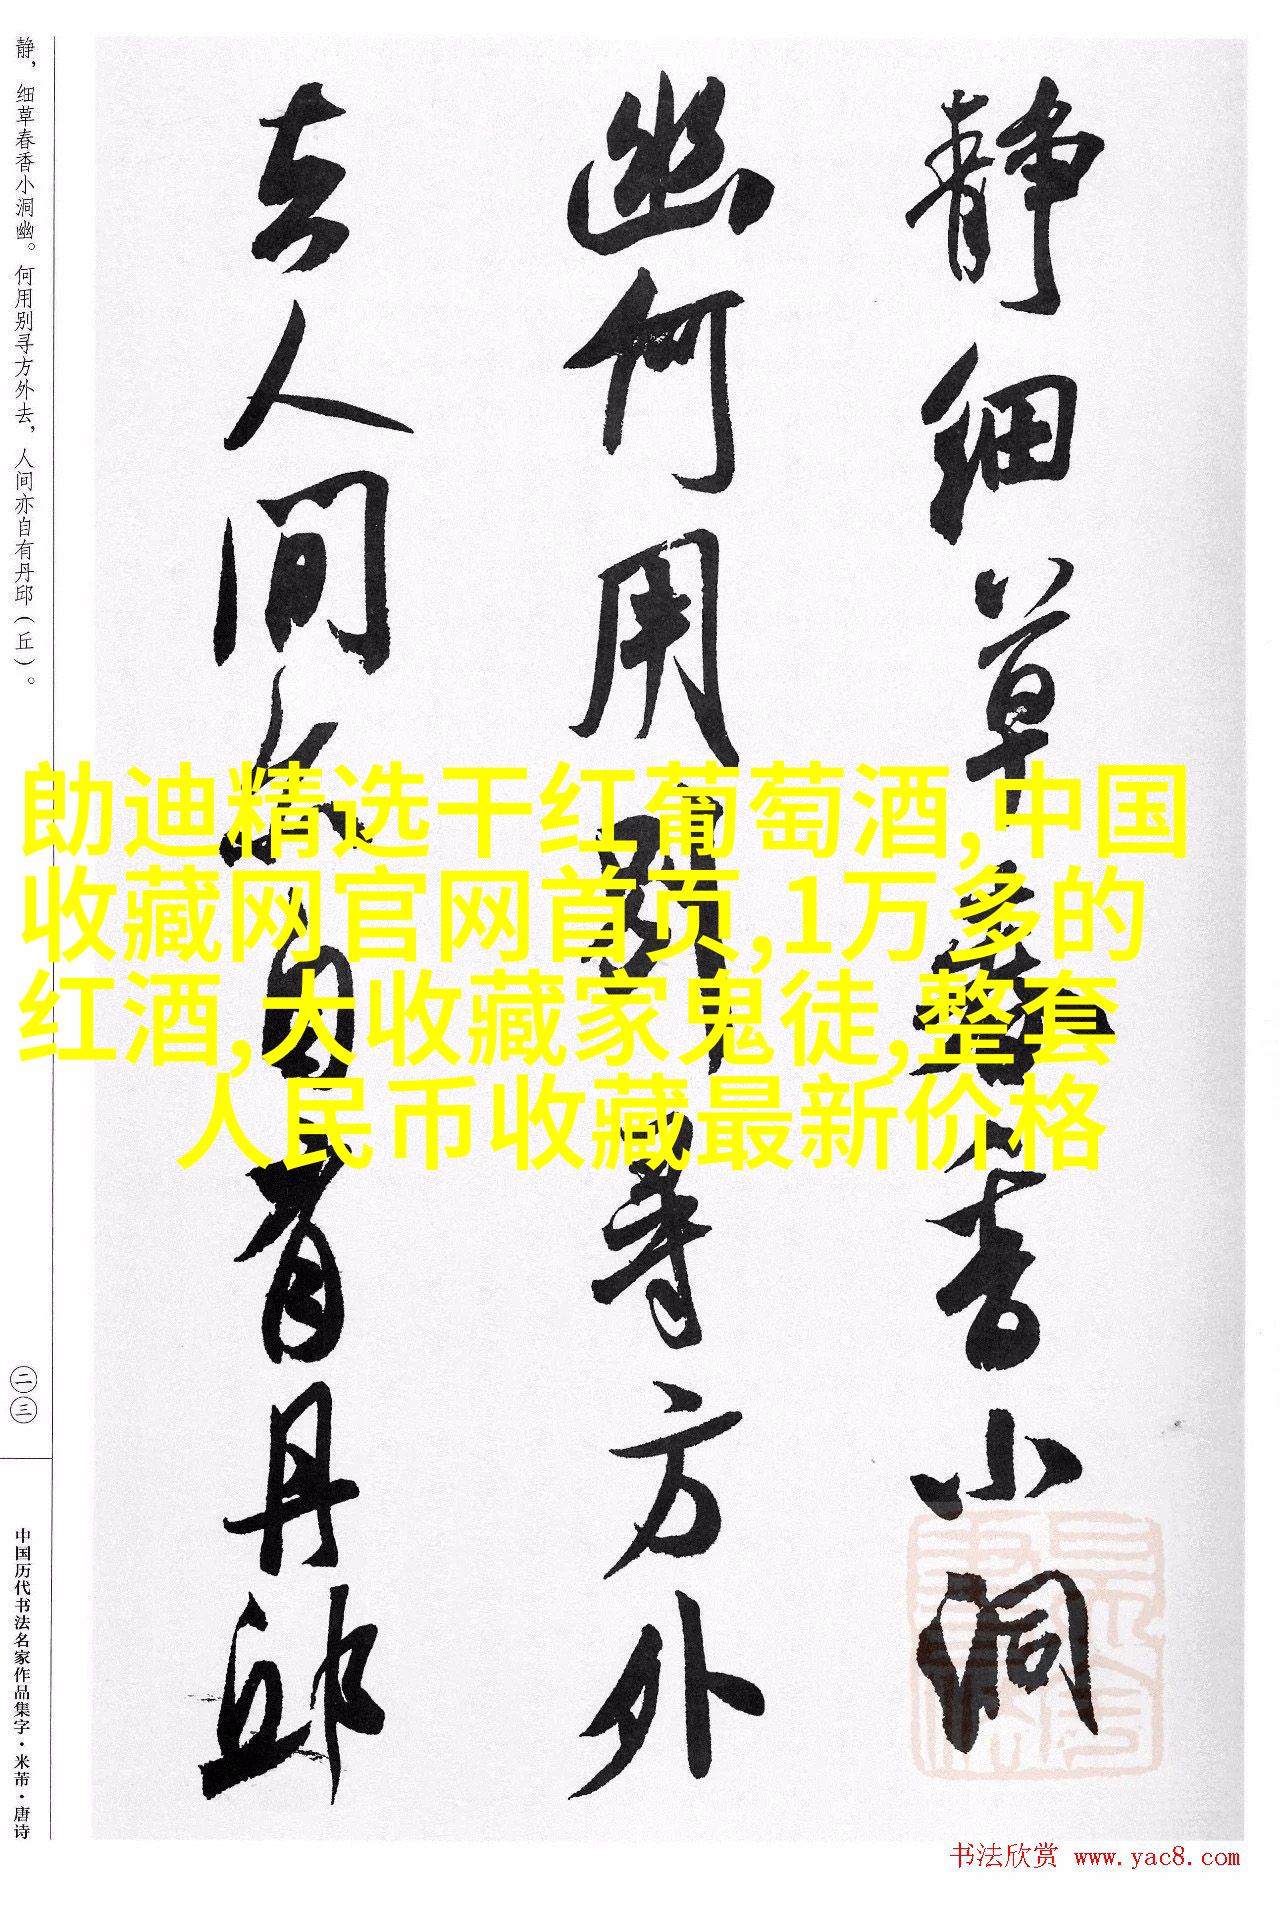 静细草春香小洞
幽何用别寻方外
去人间亦自有丹邱
静，细草春香小洞幽。何用别寻方外去，人间亦自有丹邱（丘）。
二三
中国历代书法名家作品集字·米芾·唐诗
勆迪精选干红葡萄酒,中国
收藏网官网首页,1万多的
红酒,大收藏家鬼徒,整套
人民币收藏最新价格
书法欣赏 www.yac8.com